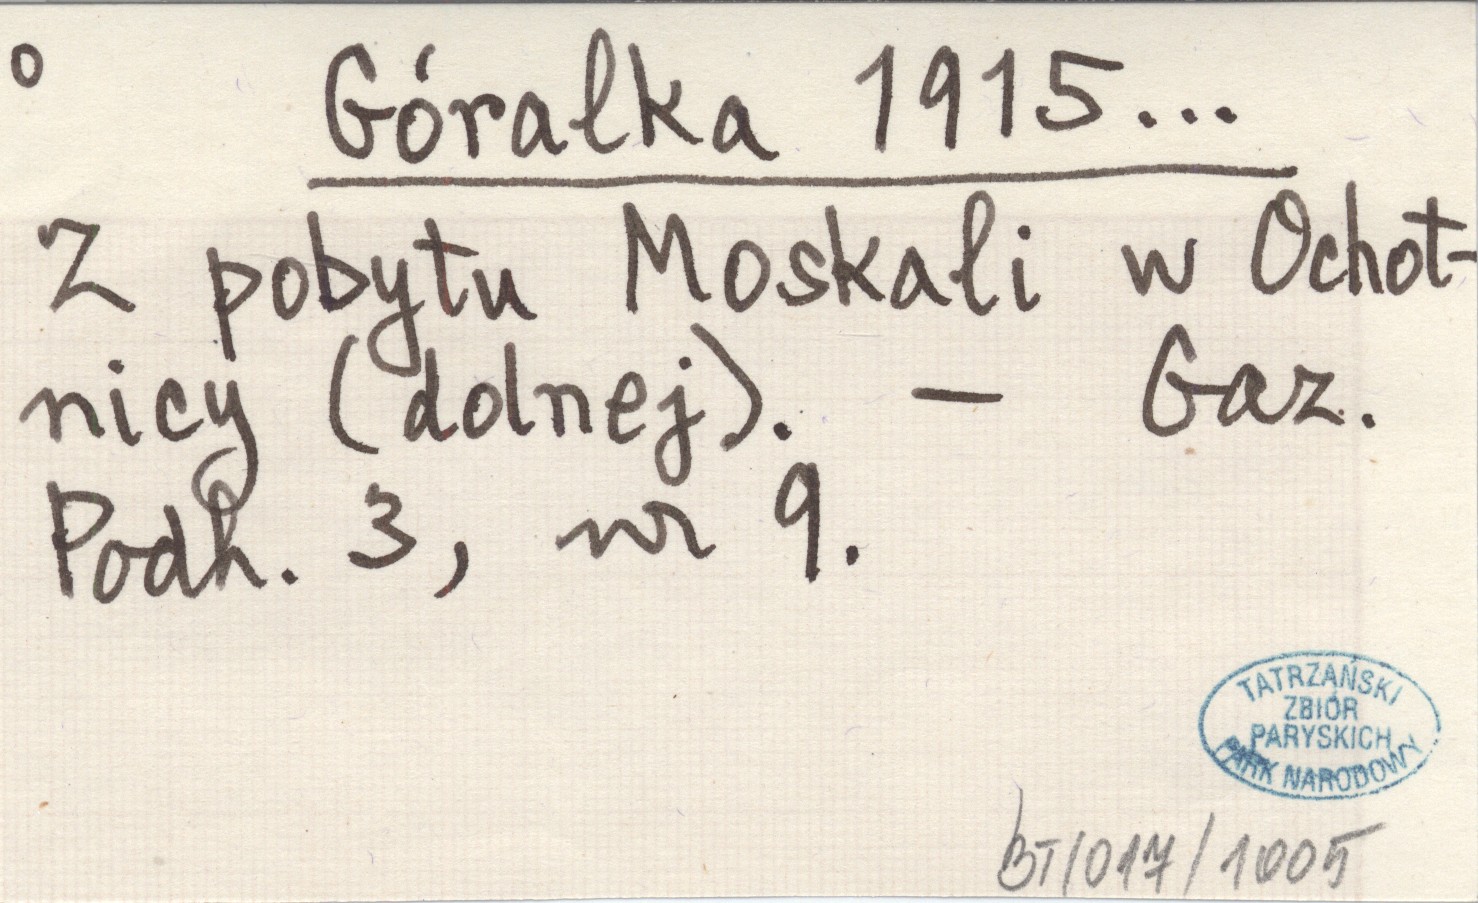 o Góralka 1915...
Z pobytu Moskali w Ochot-
nicy (dolnej). — Gaz.
Podh. 3, nr 9.
TATRZAŃSKI
ZBIÓR
PARYSKICH
PARK NARODOWY
BT/017/1005